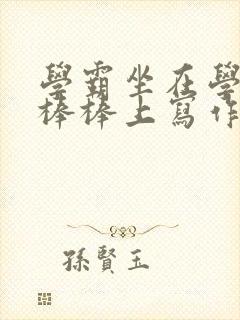 學霸坐在學
棒棒上寫作
孫賢玉